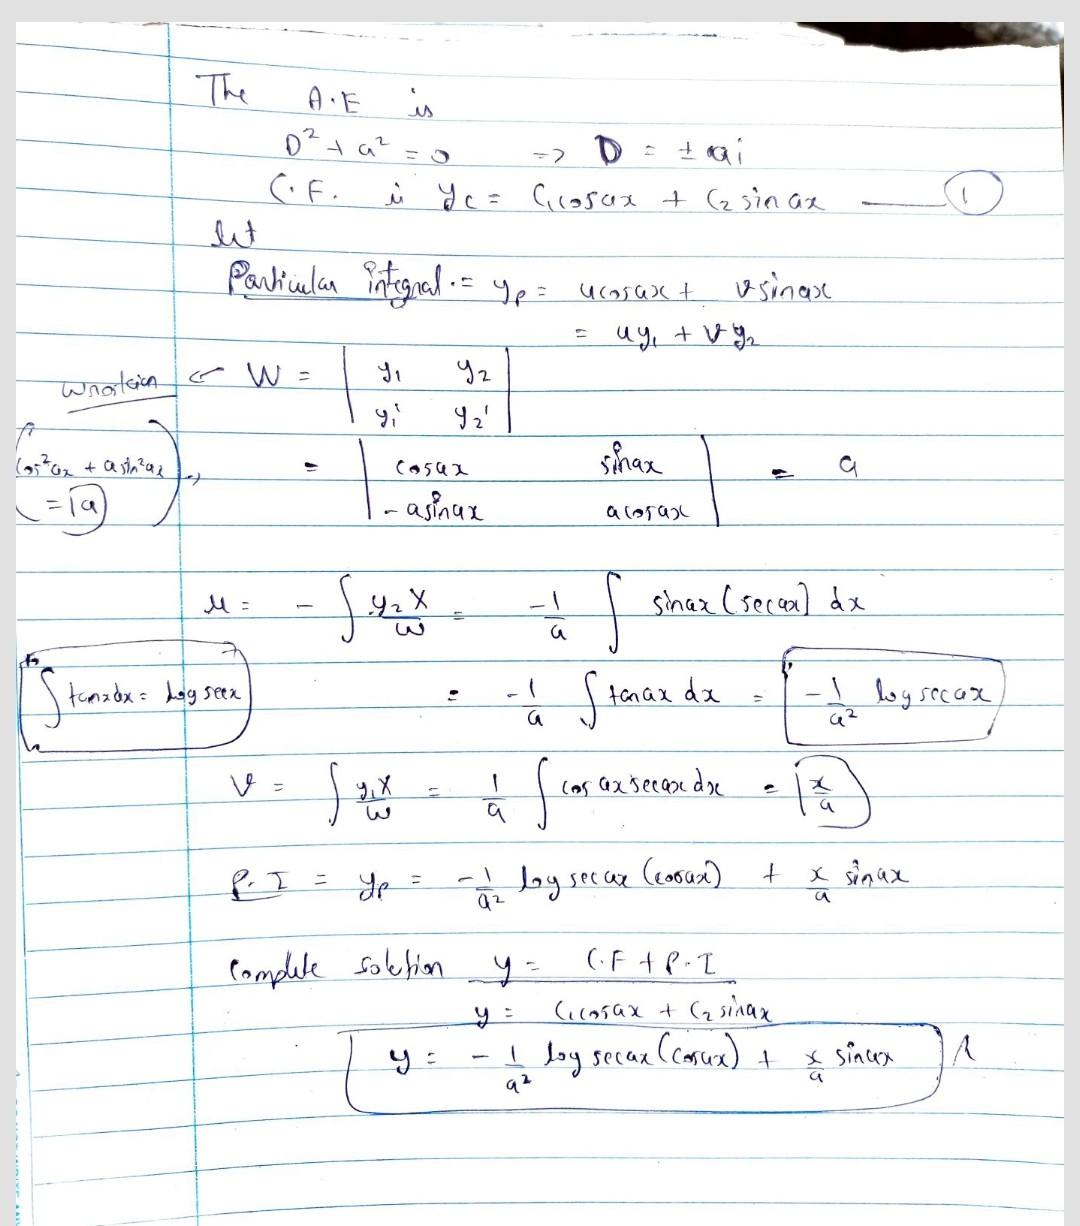 The A.E is
D² + a² = 0 => D = ± ai
C.F. is yc = C₁cosax + C₂ sin ax —— ①
let
Particular integral. = yp = ucosax + vsinax
= uy₁ + vy₂
Wronskian ← W = | y₁ y₂ |
| y₁' y₂' |
(cos²ax + a sin²ax = a) → = | cosax sinax | = a
| -asinax acosax |
u = - ∫ y₂X/w = -1/a ∫ sinax (secax) dx
∫ tanxdx = log secx = -1/a ∫ tanax dx = -1/a² log secax
v = ∫ y₁X/w = 1/a ∫ cos ax secax dx = x/a
P.I = yp = -1/a² log secax (cosax) + x/a sinax
Complete solution y = C.F + P.I
y = C₁cosax + C₂ sinax
y = - 1/a² log secax (cosax) + x/a sinax